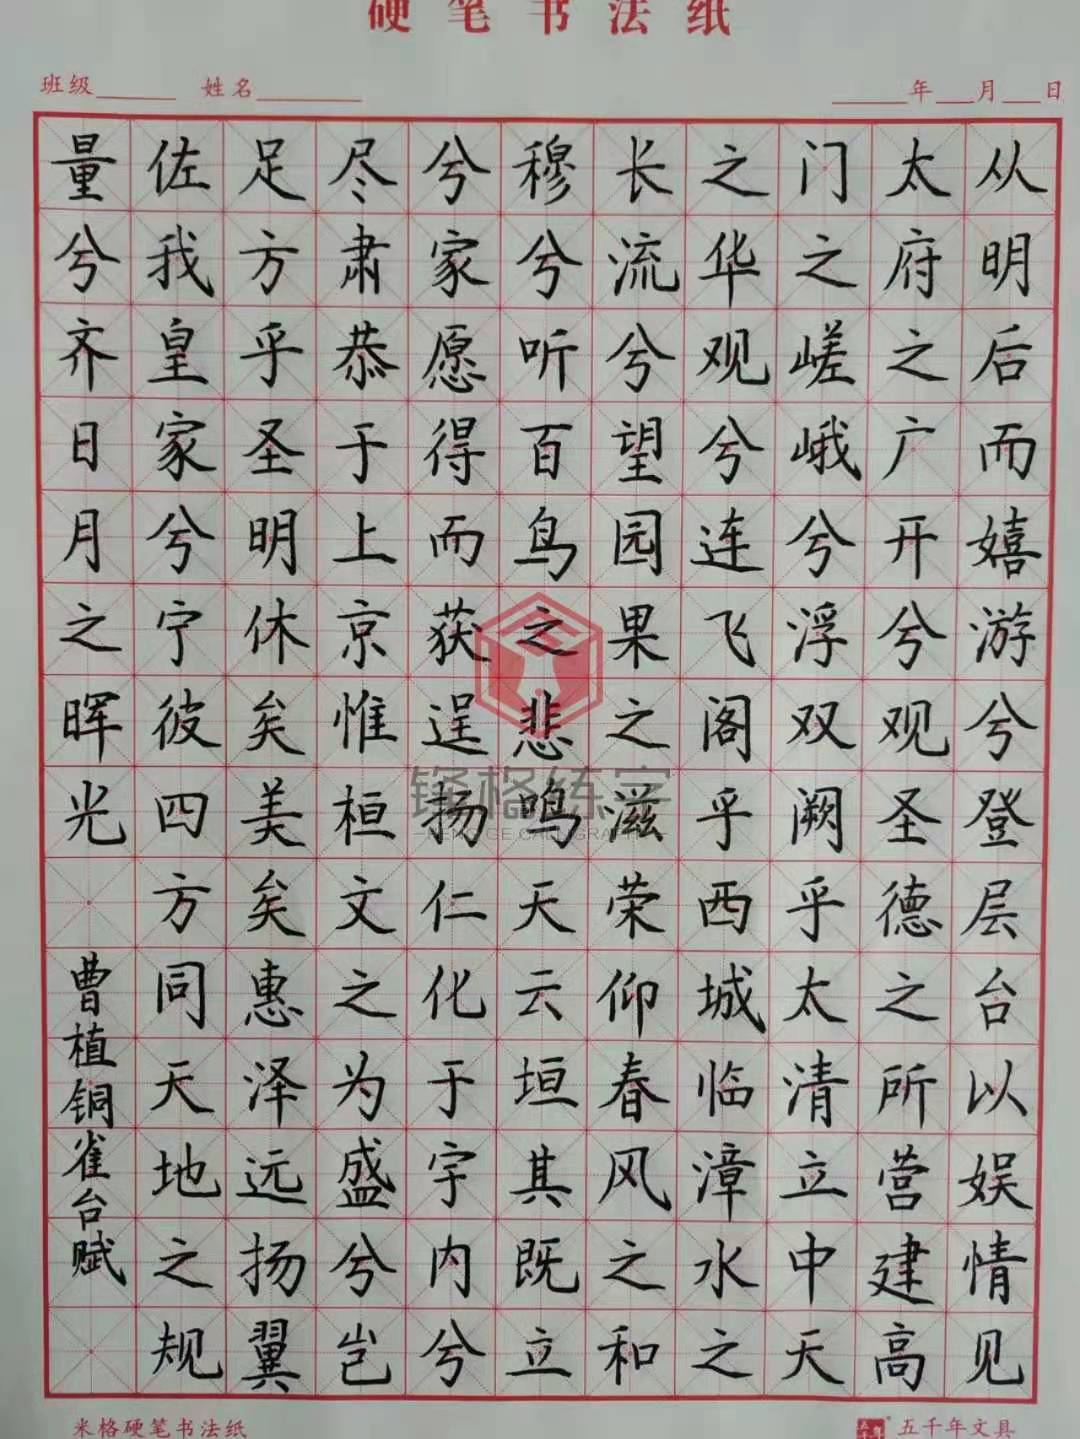 硬笔书法纸
班级 姓名 年 月 日
从明后而嬉游兮登层台以娱情见
太府之广开兮观圣德之所营建高
门之嵯峨兮浮双阙乎太清立中天
之华观兮连飞阁乎西城临漳水之
长流兮望园果之滋荣仰春风之和
穆兮听百鸟之悲鸣天云垣其既立
兮家愿得而获逞扬仁化于宇内兮
尽肃恭于上京惟桓文之为盛兮岂
足方乎圣明休矣美矣惠泽远扬翼
佐我皇家兮宁彼四方同天地之规
量兮齐日月之晖光
曹植铜雀台赋
锋格练字
米格硬笔书法纸
五千年文具